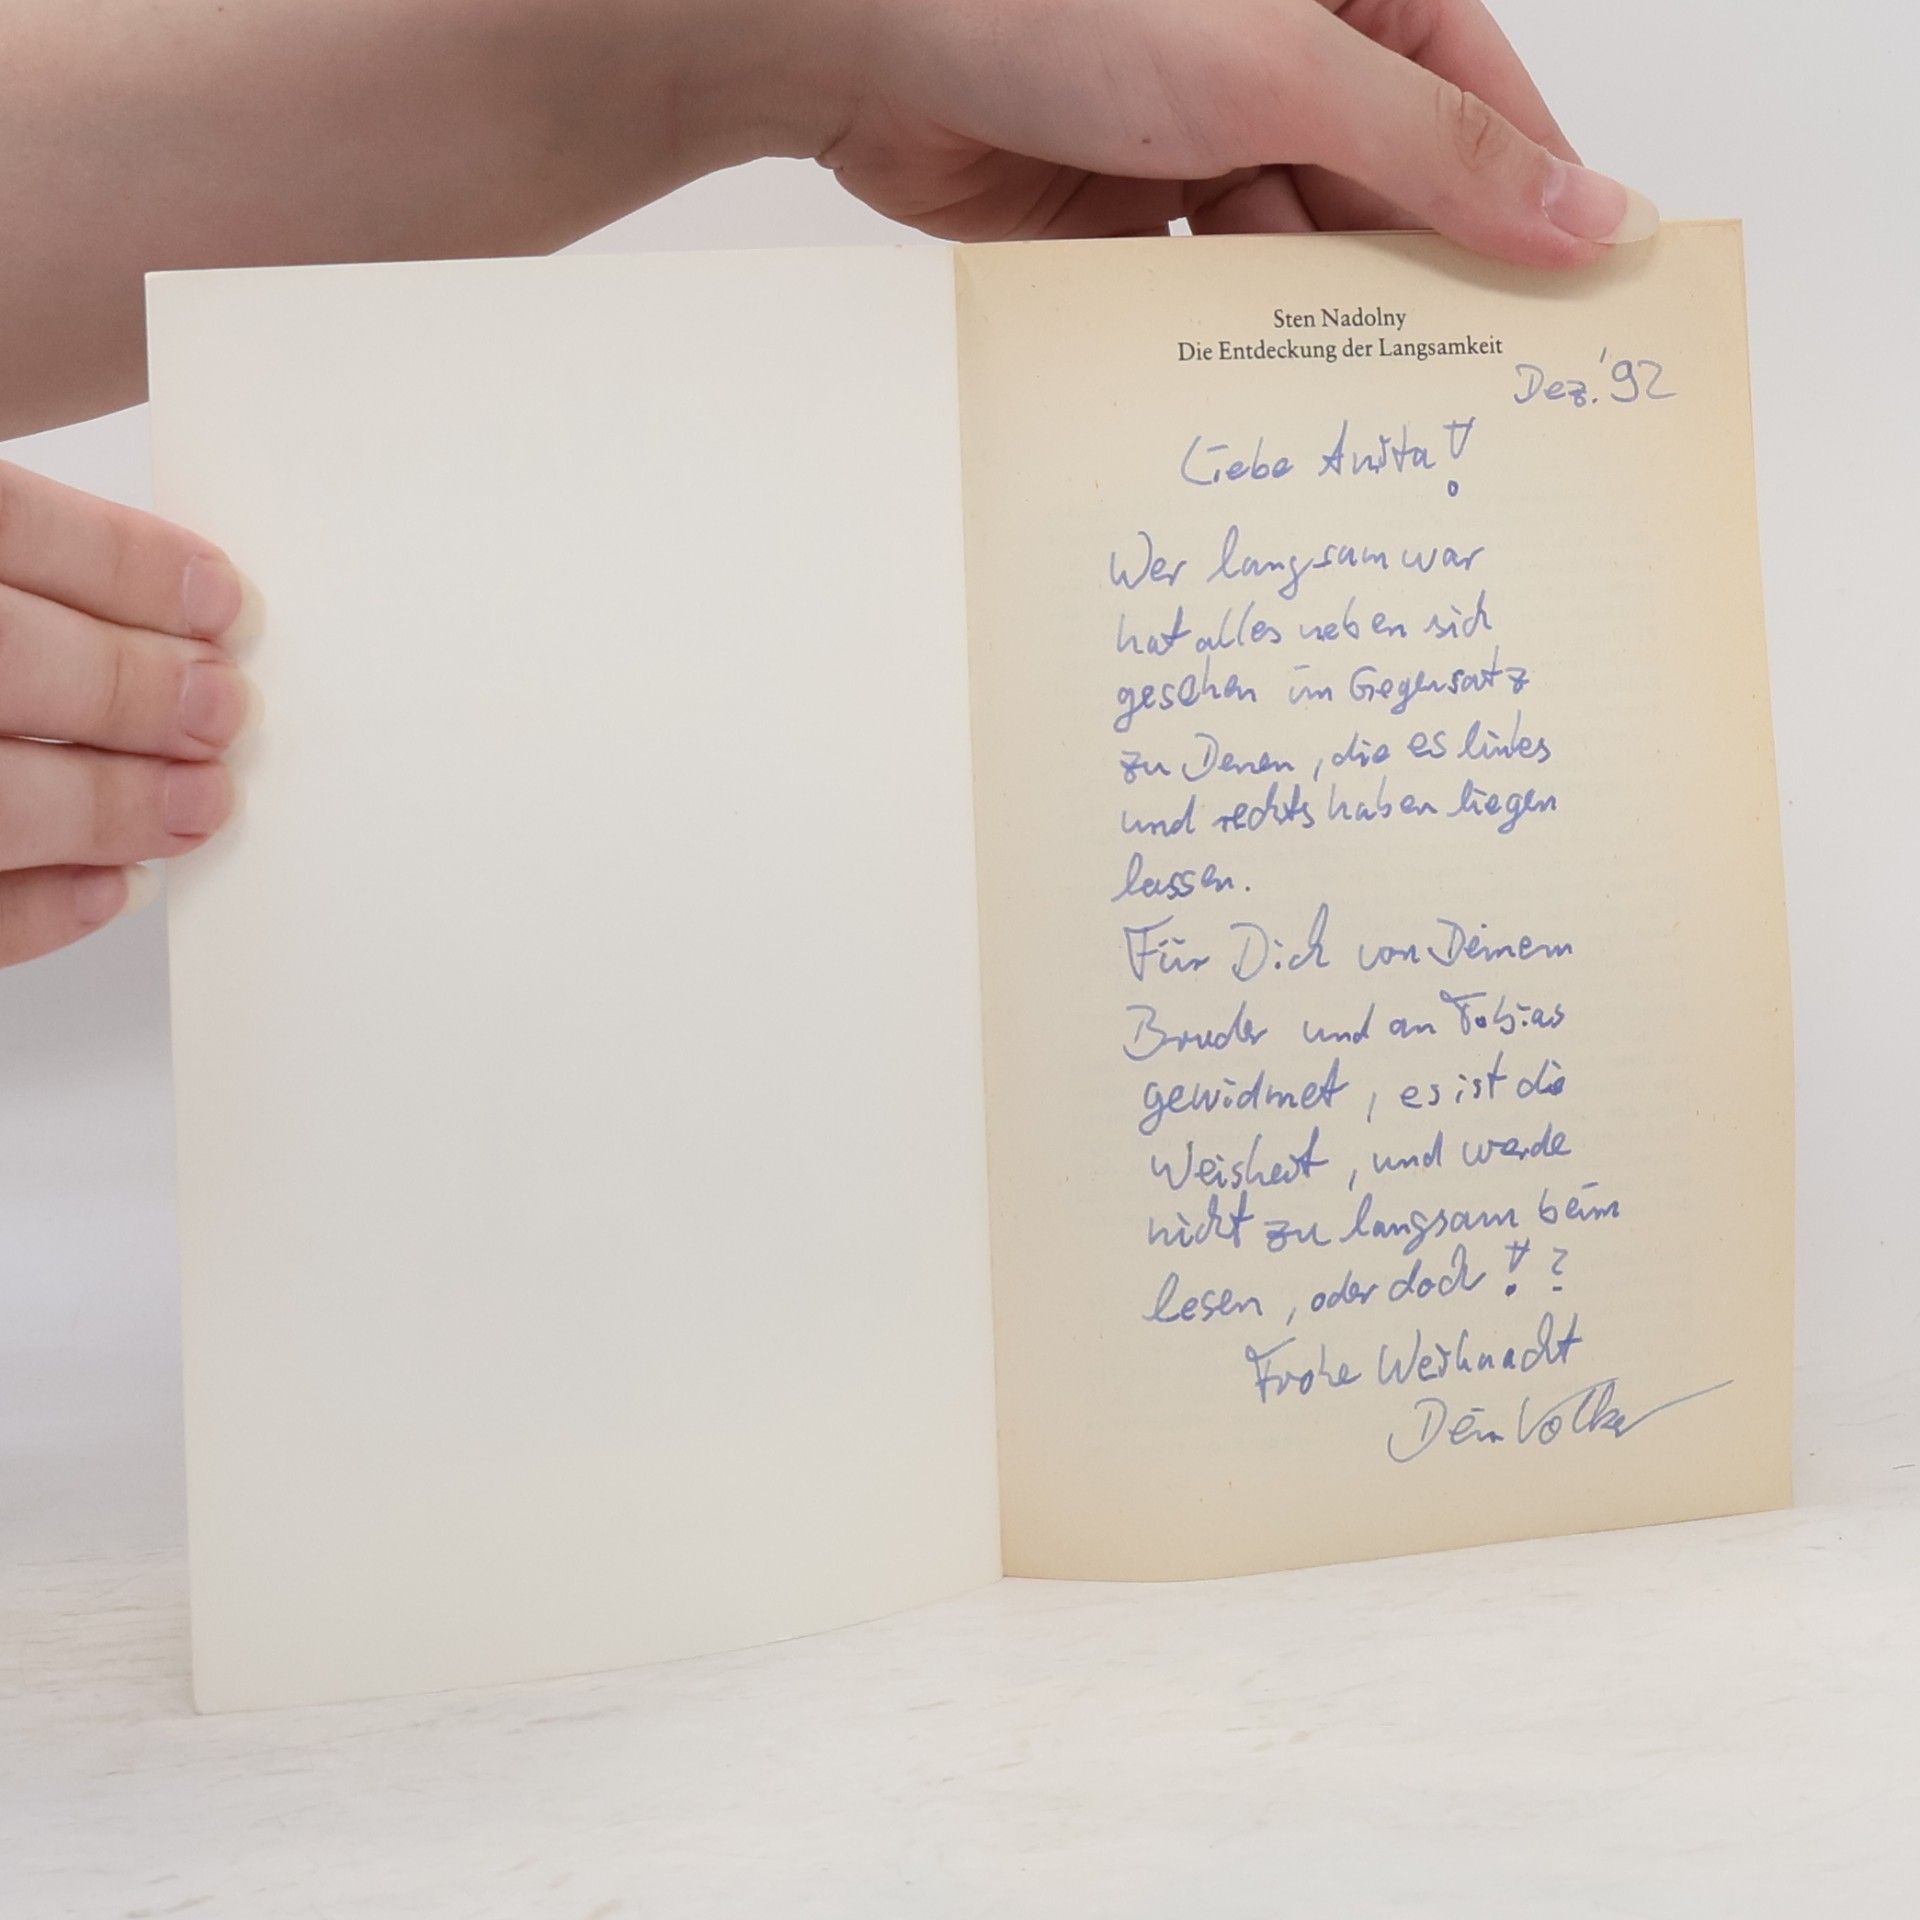 Sten Nadolny
Die Entdeckung der Langsamkeit
Dez. '92
Liebe Anita!
Wer langsam war
hat alles neben sich
gesehen im Gegensatz
zu Denen, die es links
und rechts haben liegen
lassen.
Für Dich von Deinem
Bruder und an Tobias
gewidmet, es ist die
Weisheit, und werde
nicht zu langsam beim
lesen, oder doch!?
Frohe Weihnacht
Dein Volker